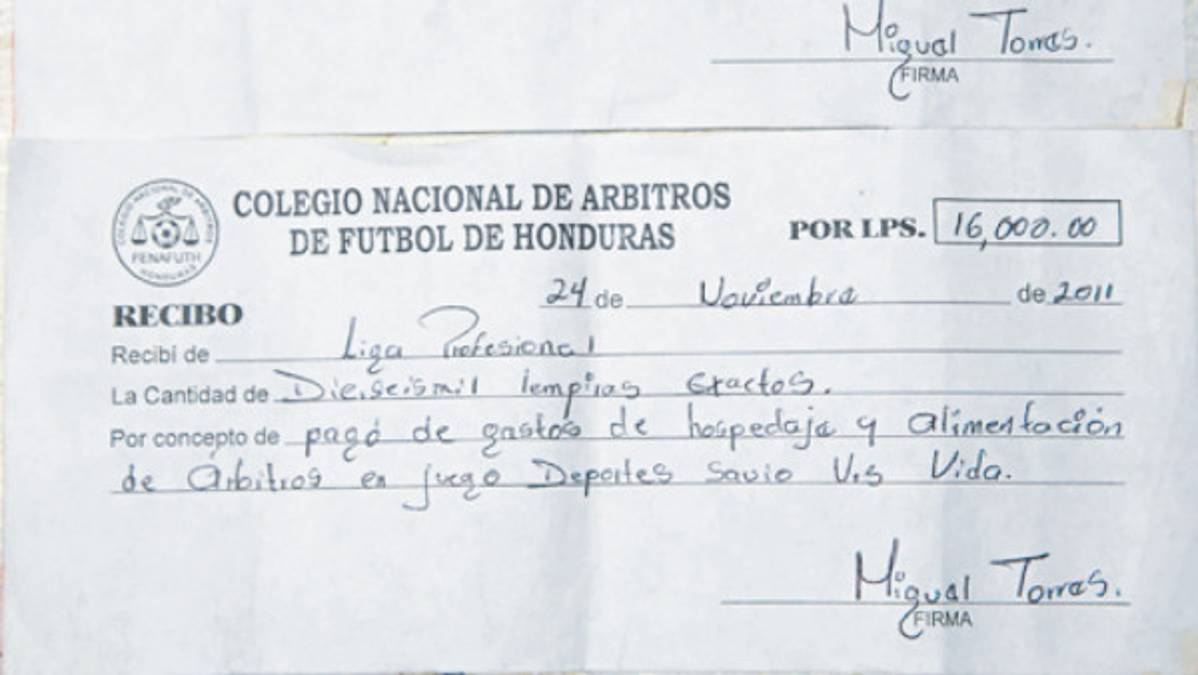 Miguel Torres.
FIRMA
COLEGIO NACIONAL DE ARBITROS
DE FUTBOL DE HONDURAS
COLEGIO NACIONAL DE ARBITROS
FENAFUTH
HONDURAS
POR LPS. 16,000.00
24 de Noviembre de 2011
RECIBO
Recibi de Liga Profesional
La Cantidad de Dieiseismil lempiras Exactos.
Por concepto de pagó de gastos de hospedaje y alimentación
de Árbitros en juego Deportes Savio V.s Vida.
Miguel Torres.
FIRMA